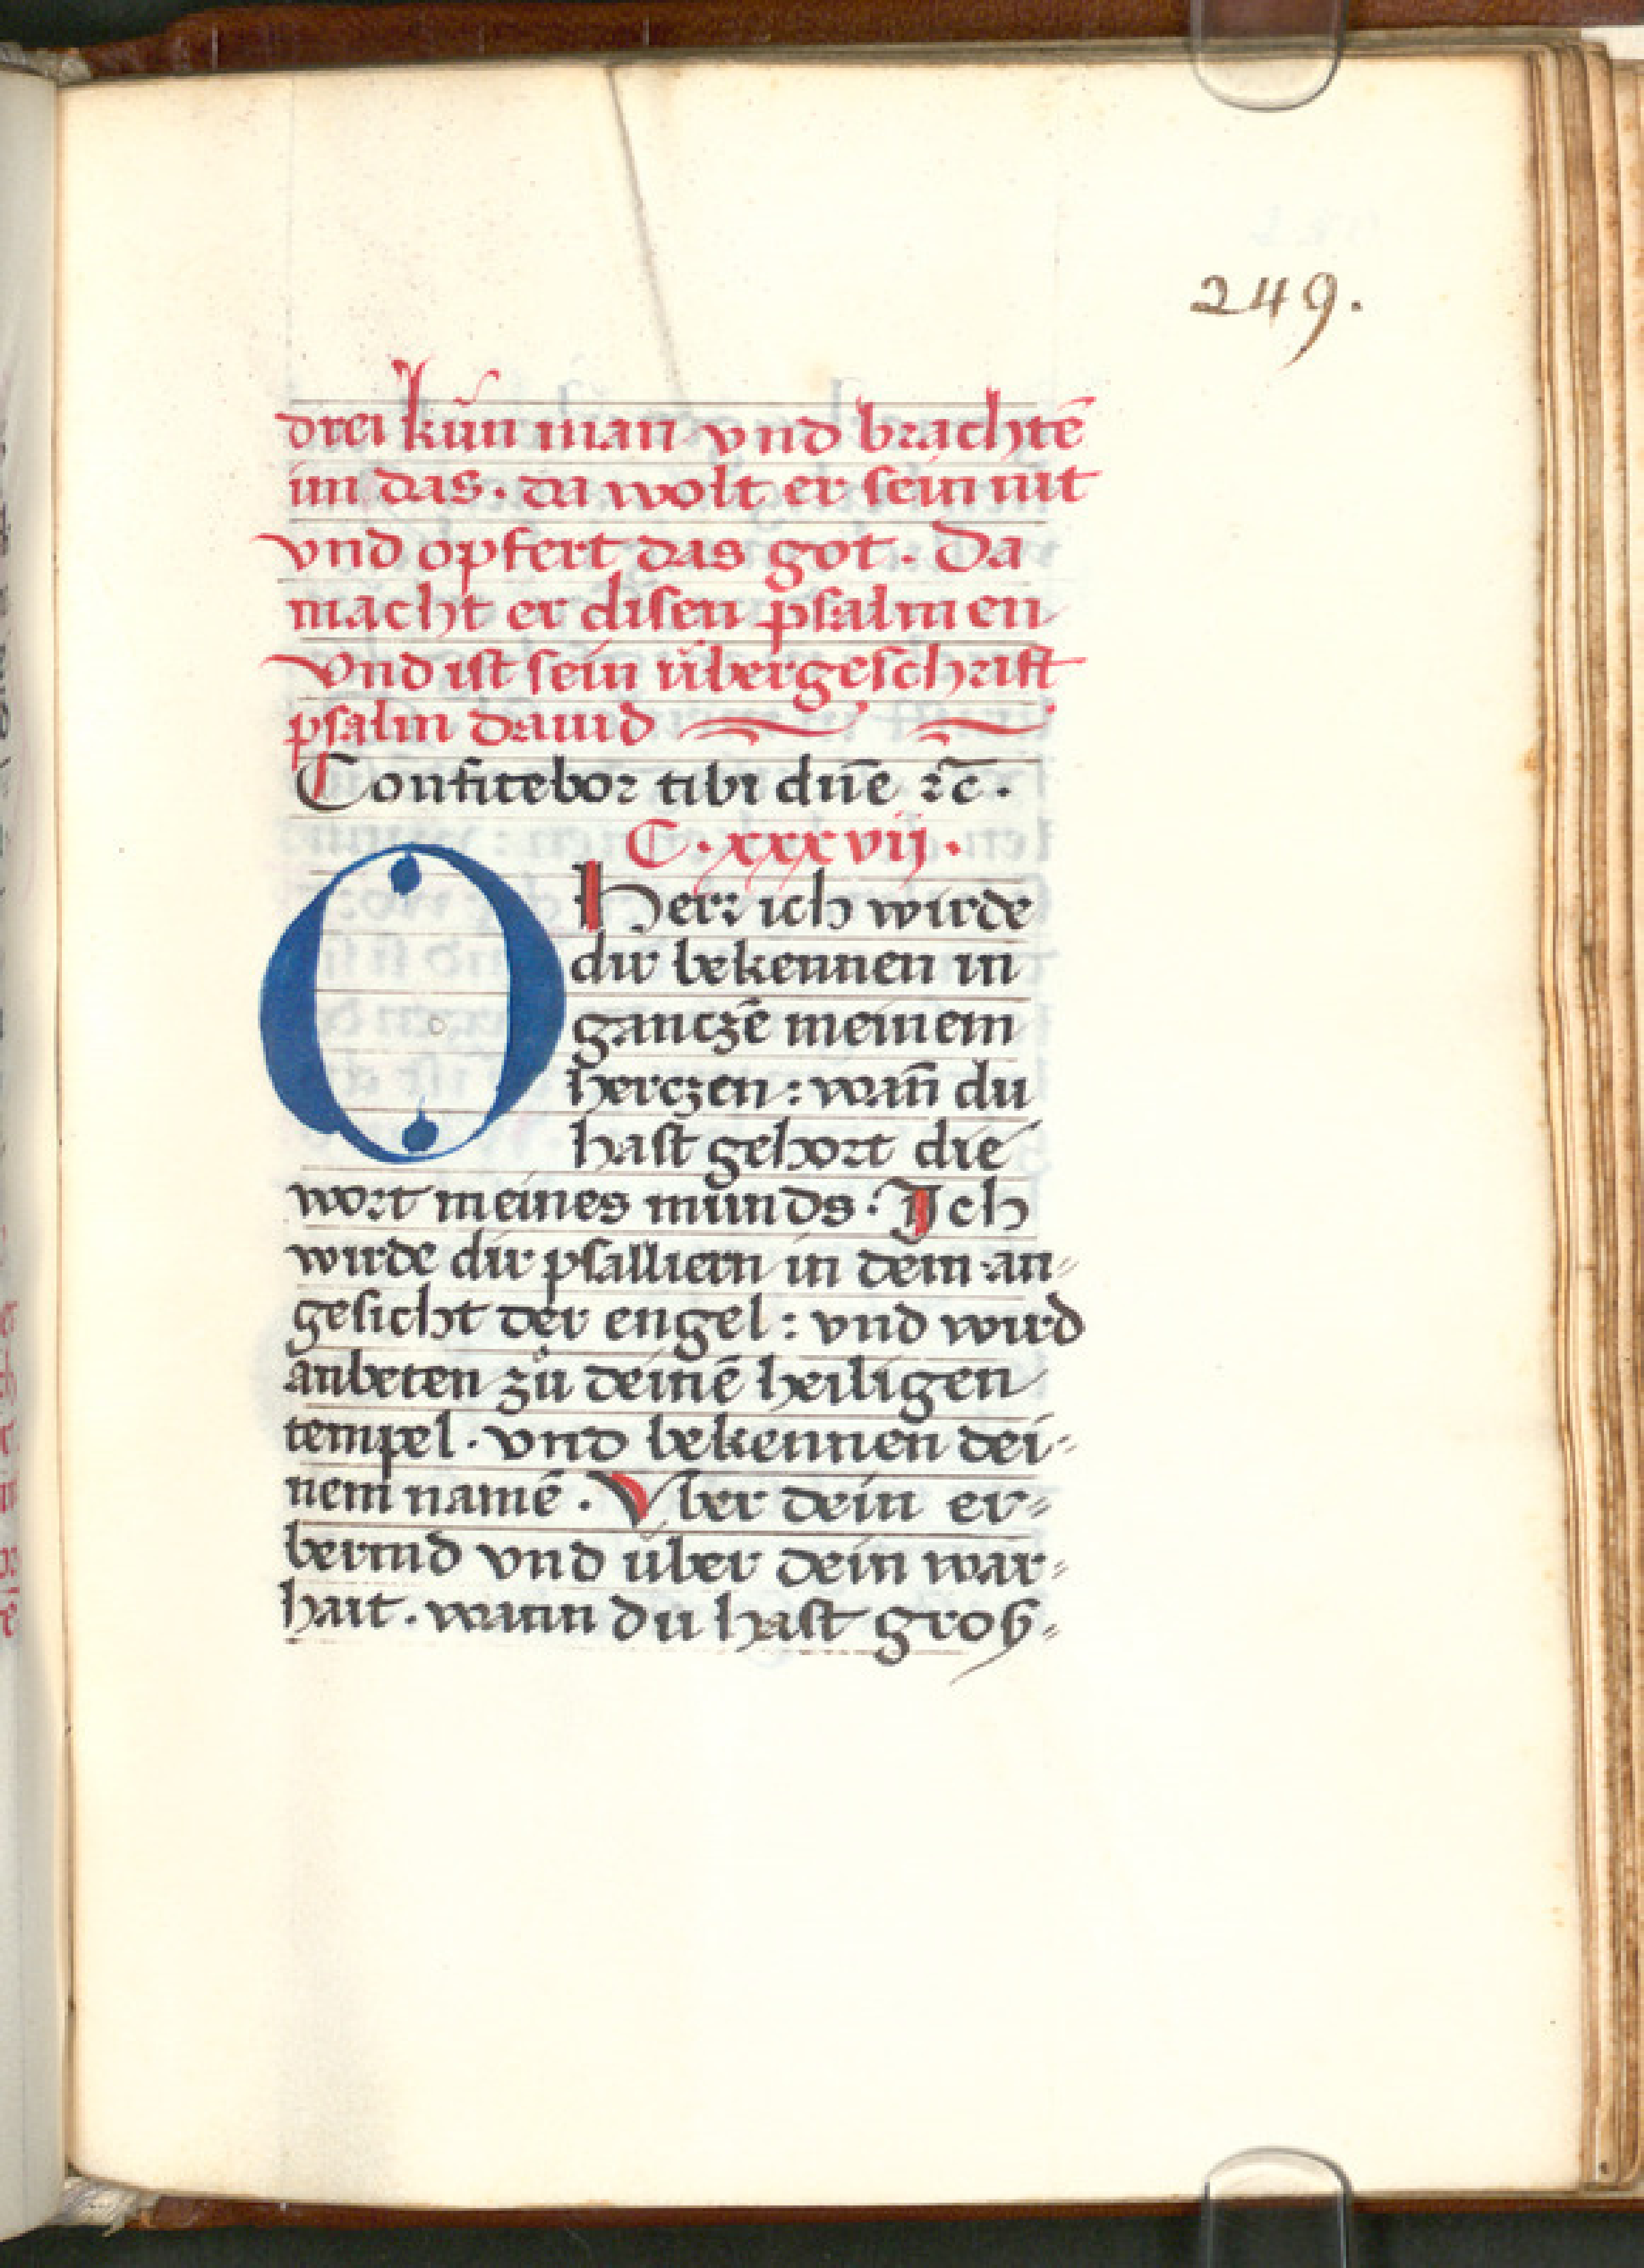 249.
drei kün man vnd brachtē
im das. da wolt er sein nit
vnd opfert das got. Da
macht er disen psalmen
Vnd ist sein übergeschrift
psalm dauid
Confitebor tibi dn̄e ꝛc̄.
C. xxxvij.
O Herr ich wirde
dir bekennen in
ganczē meinem
herczen: wan̄ du
hast gehort die
wort meines munds. Ich
wirde dir psalliern in dem an-
gesicht der engel: vnd wird
anbeten zů deinē heiligen
tempel. vnd bekennen dei-
nem namē. Vber dein er-
bermd vnd über dein war-
hait. wann du hast groß-